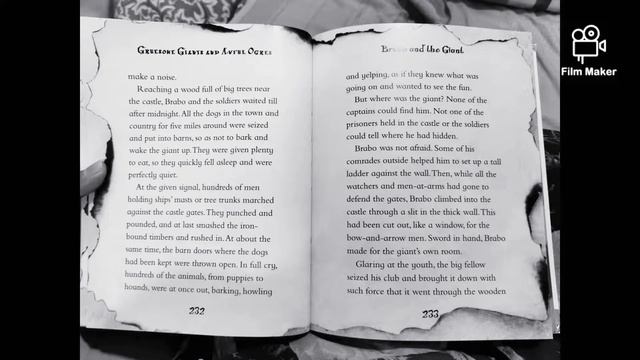 Gruesome Giants and Awful Ogres
make a noise.
Reaching a wood full of big trees near
the castle, Brabo and the soldiers waited till
after midnight. All the dogs in the town and
country for five miles around were seized
and put into barns, so as not to bark and
wake the giant up. They were given plenty
to eat, so they quickly fell asleep and were
perfectly quiet.
At the given signal, hundreds of men
holding ships' masts or tree trunks marched
against the castle gates. They punched and
pounded, and at last smashed the iron-
bound timbers and rushed in. At about the
same time, the barn doors where the dogs
had been kept were thrown open. In full cry,
hundreds of the animals, from puppies to
hounds, were at once out, barking, howling
232
Brabo and the Giant
and yelping, as if they knew what was
going on and wanted to see the fun.
But where was the giant? None of the
captains could find him. Not one of the
prisoners held in the castle or the soldiers
could tell where he had hidden.
Brabo was not afraid. Some of his
comrades outside helped him to set up a tall
ladder against the wall. Then, while all the
watchers and men-at-arms had gone to
defend the gates, Brabo climbed into the
castle through a slit in the thick wall. This
had been cut out, like a window, for the
bow-and-arrow men. Sword in hand, Brabo
made for the giant's own room.
Glaring at the youth, the big fellow
seized his club and brought it down with
such force that it went through the wooden
233
Film Maker